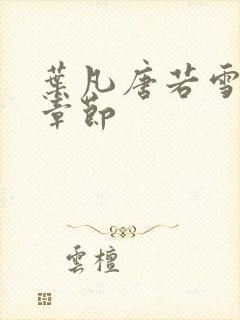 葉凡唐若雪
章節
雲檀